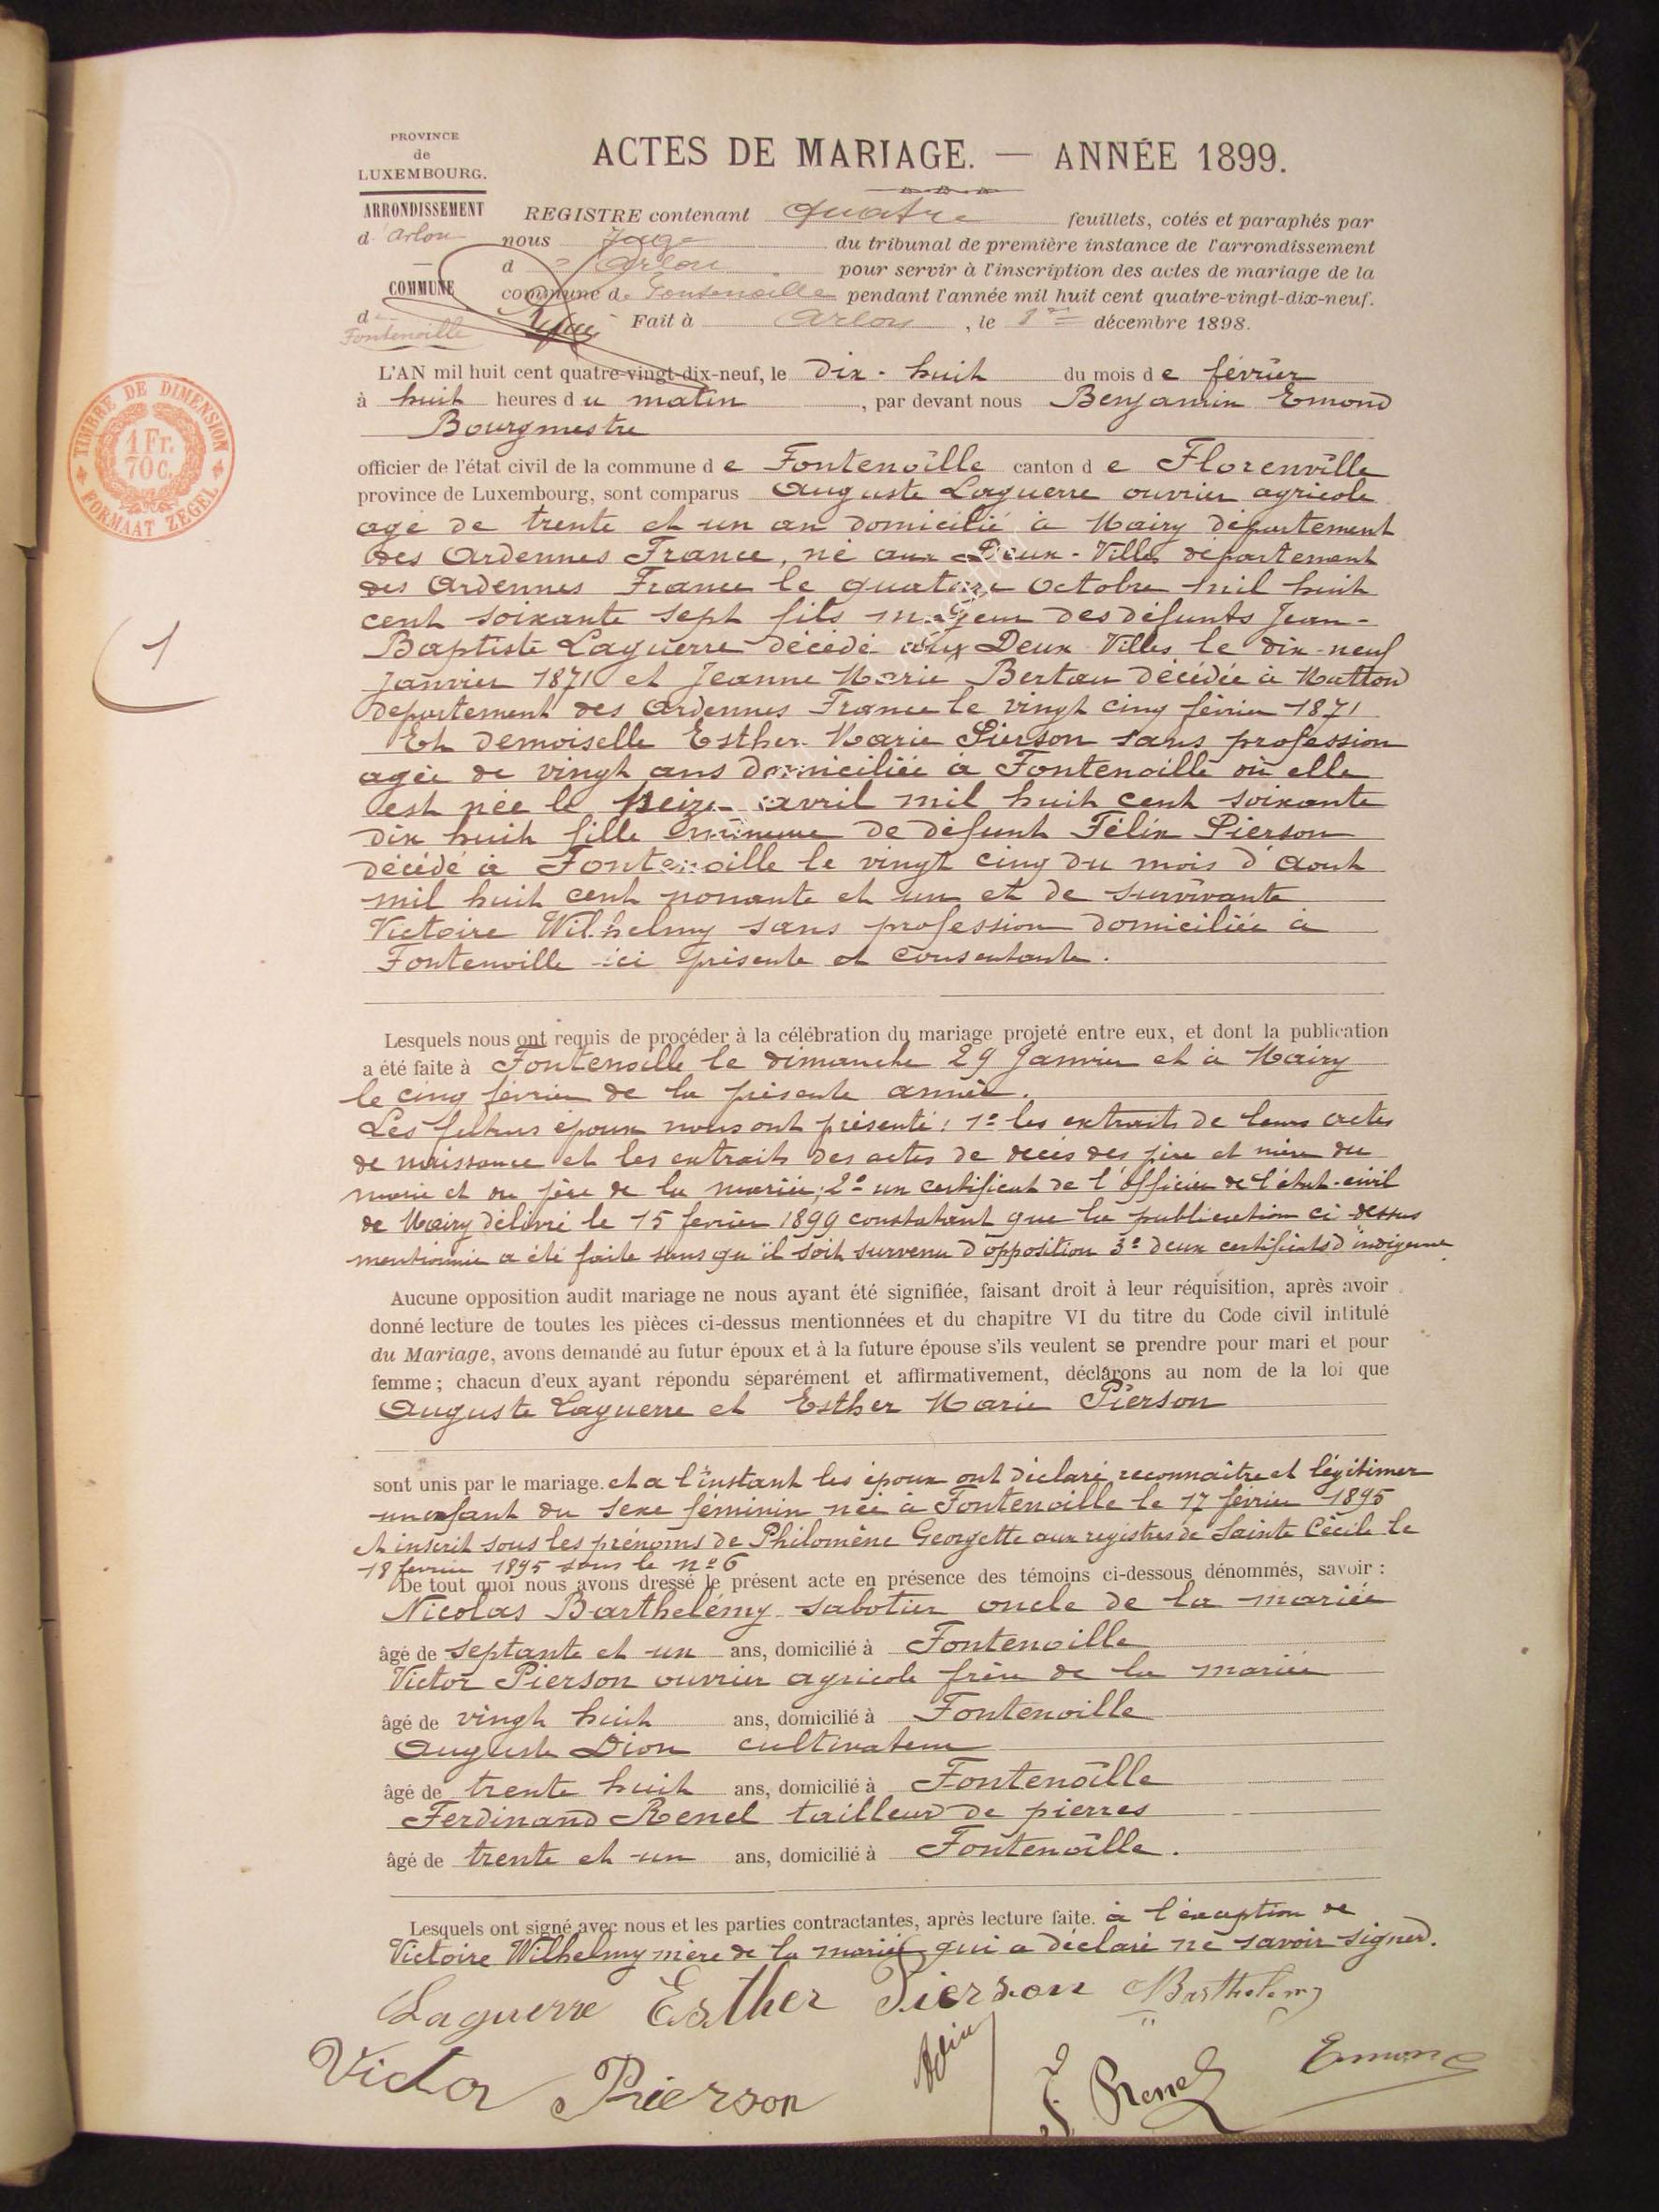 PROVINCE
de
LUXEMBOURG.
ARRONDISSEMENT
d' Arlon
COMMUNE
de
Fontenoille
ACTES DE MARIAGE. — ANNÉE 1899.
REGISTRE contenant quatre feuillets, cotés et paraphés par
nous Juge du tribunal de première instance de l'arrondissement
d' Arlon pour servir à l'inscription des actes de mariage de la
commune de Fontenoille pendant l'année mil huit cent quatre-vingt-dix-neuf.
Fait à Arlon, le 1er décembre 1898.
TIMBRE DE DIMENSION
1 Fr.
70 C.
FORMAAT ZEGEL
1
L'AN mil huit cent quatre-vingt-dix-neuf, le Dix-huit du mois de février
à huit heures du matin, par devant nous Benjamin Emond
Bourgmestre
officier de l'état civil de la commune de Fontenoille canton de Florenville
province de Luxembourg, sont comparus Auguste Laguerre ouvrier agricole
agé de trente et un an domicilié à Mairy département
des Ardennes France, né aux Deux-Villes département
des Ardennes France le quatorze Octobre mil huit
cent soixante sept fils majeur des défunts Jean-
Baptiste Laguerre décédé aux Deux Villes le dix-neuf
Janvier 1871 et Jeanne Marie Bertau décédée à Matton
département des Ardennes France le vingt cinq février 1871
Et demoiselle Esther Marie Pierson sans profession
agée de vingt ans domiciliée à Fontenoille où elle
est née le avril mil huit cent soixante
dix huit fille mineure de défunt Félix Pierson
décédé à Fontenoille le vingt cinq du mois d'Aout
mil huit cent nonante et un et de survivante
Victoire Wilhelmy sans profession domiciliée à
Fontenoille ici présente et consentante.
Lesquels nous ont requis de procéder à la célébration du mariage projeté entre eux, et dont la publication
a été faite à Fontenoille le dimanche 29 Janvier et à Mairy
le cinq février de la présente année.
Les futurs époux nous ont présenté: 1º les extraits de leurs actes
de naissance et les extraits des actes de décès des père et mère du
marié et du père de la mariée; 2º un certificat de l'officier de l'état-civil
de Mairy délivré le 15 fevrier 1899 constatant que la publication ci-dessus
mentionnée a été faite sans qu'il soit survenu d'opposition 3º deux certificats d'indigence.
Aucune opposition audit mariage ne nous ayant été signifiée, faisant droit à leur réquisition, après avoir
donné lecture de toutes les pièces ci-dessus mentionnées et du chapitre VI du titre du Code civil intitulé
du Mariage, avons demandé au futur époux et à la future épouse s'ils veulent se prendre pour mari et pour
femme; chacun d'eux ayant répondu séparément et affirmativement, déclarons au nom de la loi que
Auguste Laguerre et Esther Marie Pierson
sont unis par le mariage. et a l'instant les époux ont déclaré reconnaître et légitimer
un enfant du sexe féminin née à Fontenoille le 17 février 1895
et inscrit sous les prénoms de Philomène Georgette aux registres de Sainte Cécile le
18 fevrier 1895 sous le nº 6
De tout quoi nous avons dressé le présent acte en présence des témoins ci-dessous dénommés, savoir :
Nicolas Barthelémy sabotier oncle de la mariée
âgé de septante et un ans, domicilié à Fontenoille
Victor Pierson ouvrier agricole frère de la mariée
âgé de vingt huit ans, domicilié à Fontenoille
Auguste Dion cultivateur
âgé de trente huit ans, domicilié à Fontenoille
Ferdinand Renel tailleur de pierres
âgé de trente et un ans, domicilié à Fontenoille.
Lesquels ont signé avec nous et les parties contractantes, après lecture faite. à l'exception de
Victoire Wilhelmy mère de la mariée qui a déclaré ne savoir signer.
Laguerre Esther Pierson Barthelemy
Victor Pierson F. Renel Emond